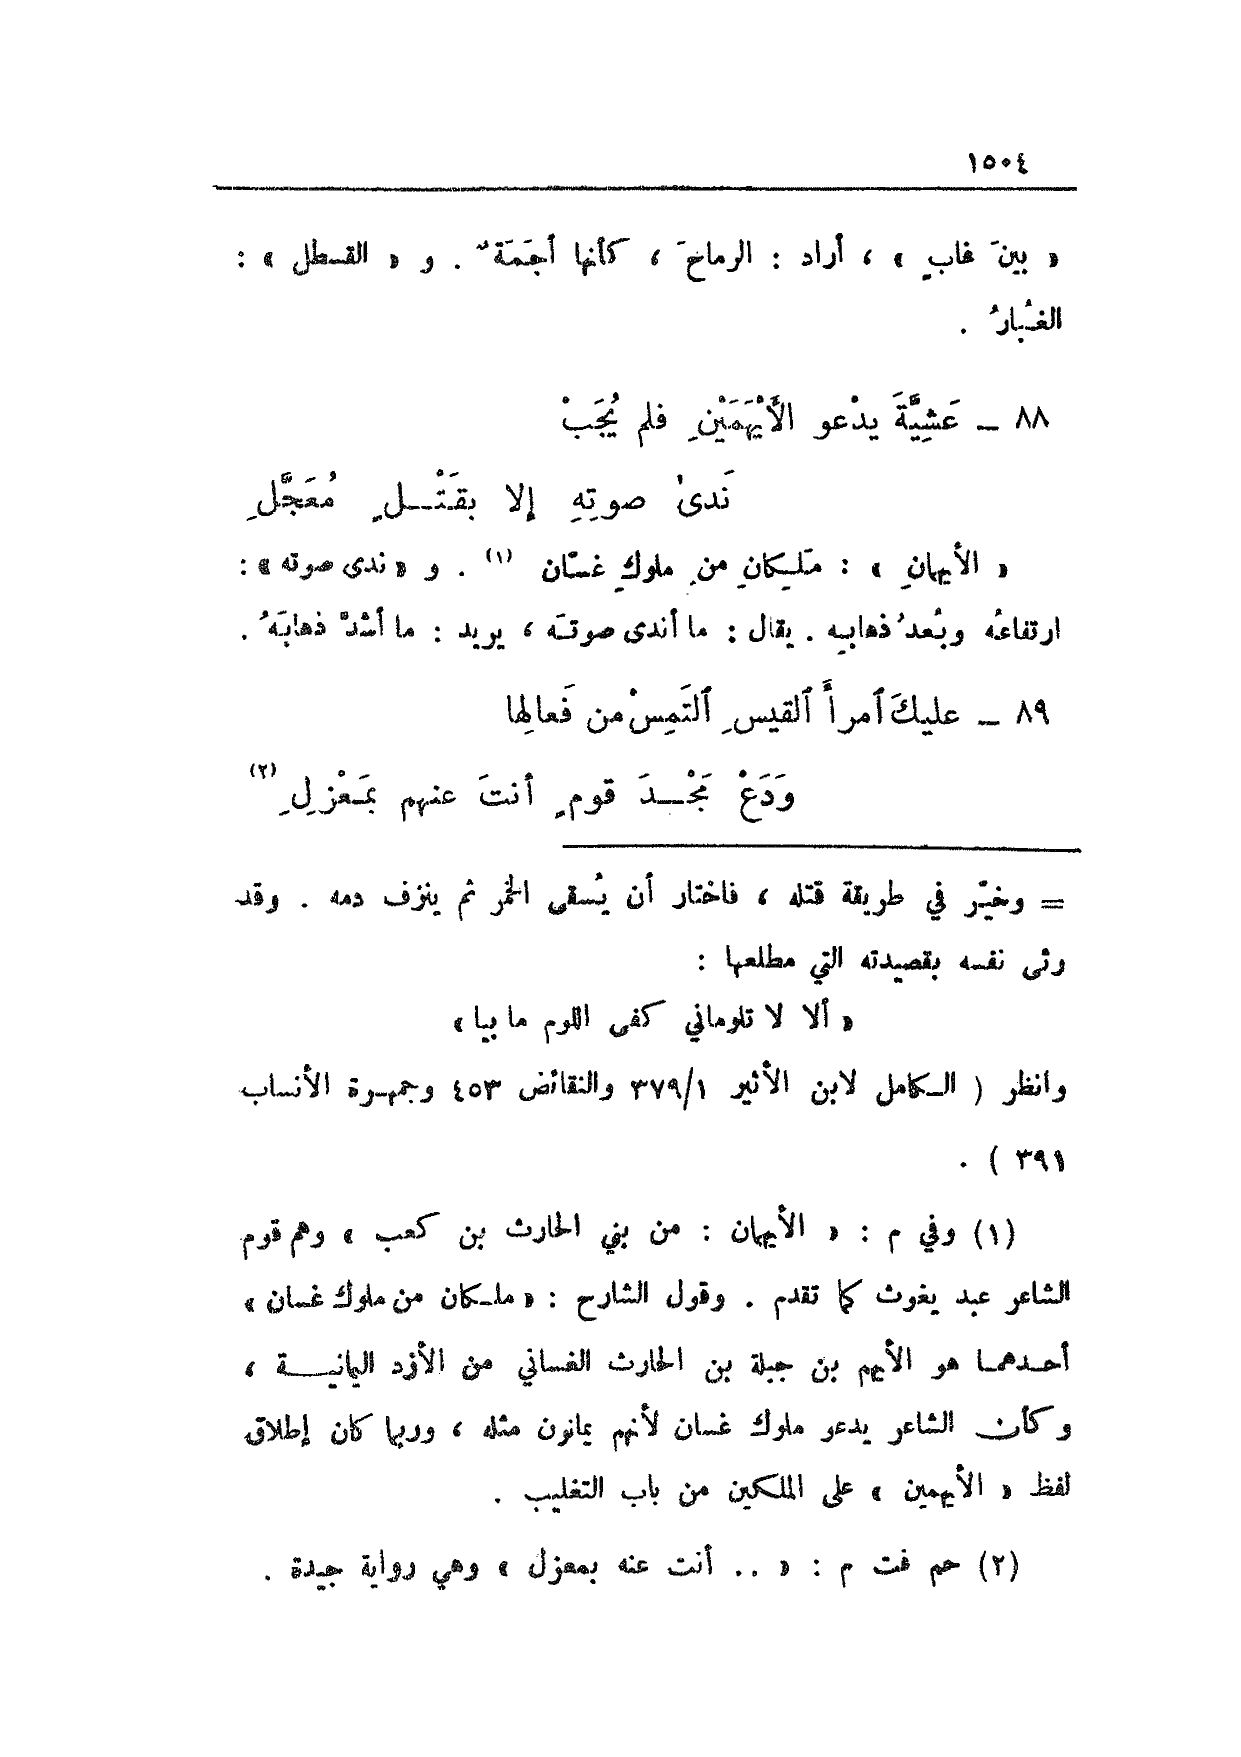 ١٥٠٤
« بينَ غابٍ » ، أراد : الرماحَ ، كأنها أجَمَةٌ . و « القسطل » :
الغُبارُ .
٨٨ ــ عَشِيَّةَ يدْعو الأَيْهَمَيْنِ فلم يُجَبْ
نَدىٰ صوتِهِ إلا بقَتْــلٍ مُعَجَّلِ
« الأيهانِ » : مَلِكانِ من ملوكِ غسّان (١) . و «ندى صوته» :
ارتفاعُه وبُعدُ ذهابِه . يقال : ما أندى صوتَه ، يريد : ما أشدَّ ذهابَهُ .
٨٩ ــ عليكَ ٱمرأَ ٱلقيسِ ٱلتَمِسْ من فَعالِها
وَدَعْ مَجْــدَ قومٍ أنتَ عنهم بمَعْزِلِ (٢)
= وخيّر في طريقة قتله ، فاختار أن يُسقى الخمر ثم ينزف دمه . وقد
رثى نفسه بقصيدته التي مطلعها :
« ألا لا تلوماني كفى اللوم ما بيا »
وانظر ( الكامل لابن الأثير ٣٧٩/١ والنقائض ٤٥٣ وجمهرة الأنساب
٣٩١ ) .
(١) وفي م : « الأيهان : من بني الحارث بن كعب » وهم قوم
الشاعر عبد يغوث كما تقدم . وقول الشارح : « ملكان من ملوك غسان »
أحدهما هو الأيهم بن جبلة بن الحارث الغساني من الأزد اليمانيــة ،
وكأن الشاعر يدعو ملوك غسان لأنهم يمانون مثله ، وربما كان إطلاق
لفظ « الأيهمين » على الملكين من باب التغليب .
(٢) حم فت م : « .. أنت عنه بمعزل » وهي رواية جيدة .